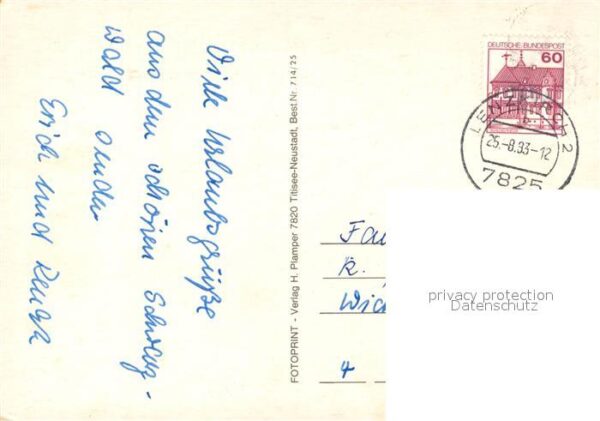 Viele Urlaubsgrüße
aus dem schönen Schwarz-
wald senden
Erich und
FOTOPRINT - Verlag H. Plamper 7820 Titisee-Neustadt, Best.Nr. 714/25
DEUTSCHE BUNDESPOST
60
LENZKIRCH 2
25.-8.83-12
7825
Fam
K.
Wid
4
privacy protection
Datenschutz